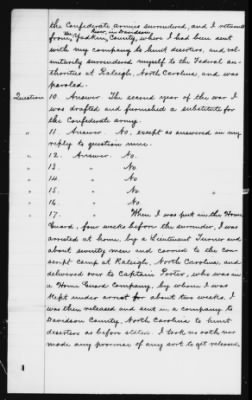 the Confederate armies surrendered, and I returned
now, in Davidson,
from Yadkin, County, where I had been sent
with my company to hunt deserters, and vol-
untarily surrendered myself to the Federal au-
thorities at Raleigh, North Carolina, and was
paroled.
Question 10. Answer. The second year of the war I
was drafted and furnished a substitute for
the Confederate army.
" 11. Answer. No, except as answered in my
reply to question nine.
" 12. Answer. No.
" 13. " No
" 14. " No
" 15. " No
" 16. " No.
" 17. " When I was put in the Home
Guard, four weeks before the surrender, I was
arrested at home, by a Lieutenant Turner and
about seventy men and carried to the con-
script camp at Raleigh, North Carolina, and
delivered over to Captain Porter, who was in
a Home Guard Company, by whom I was
kept under arrest for about two weeks. I
was then released and sent in a company to
Davidson County, North Carolina to hunt
deserters as before stated. I took no oath nor
made any promise of any sort to get released.